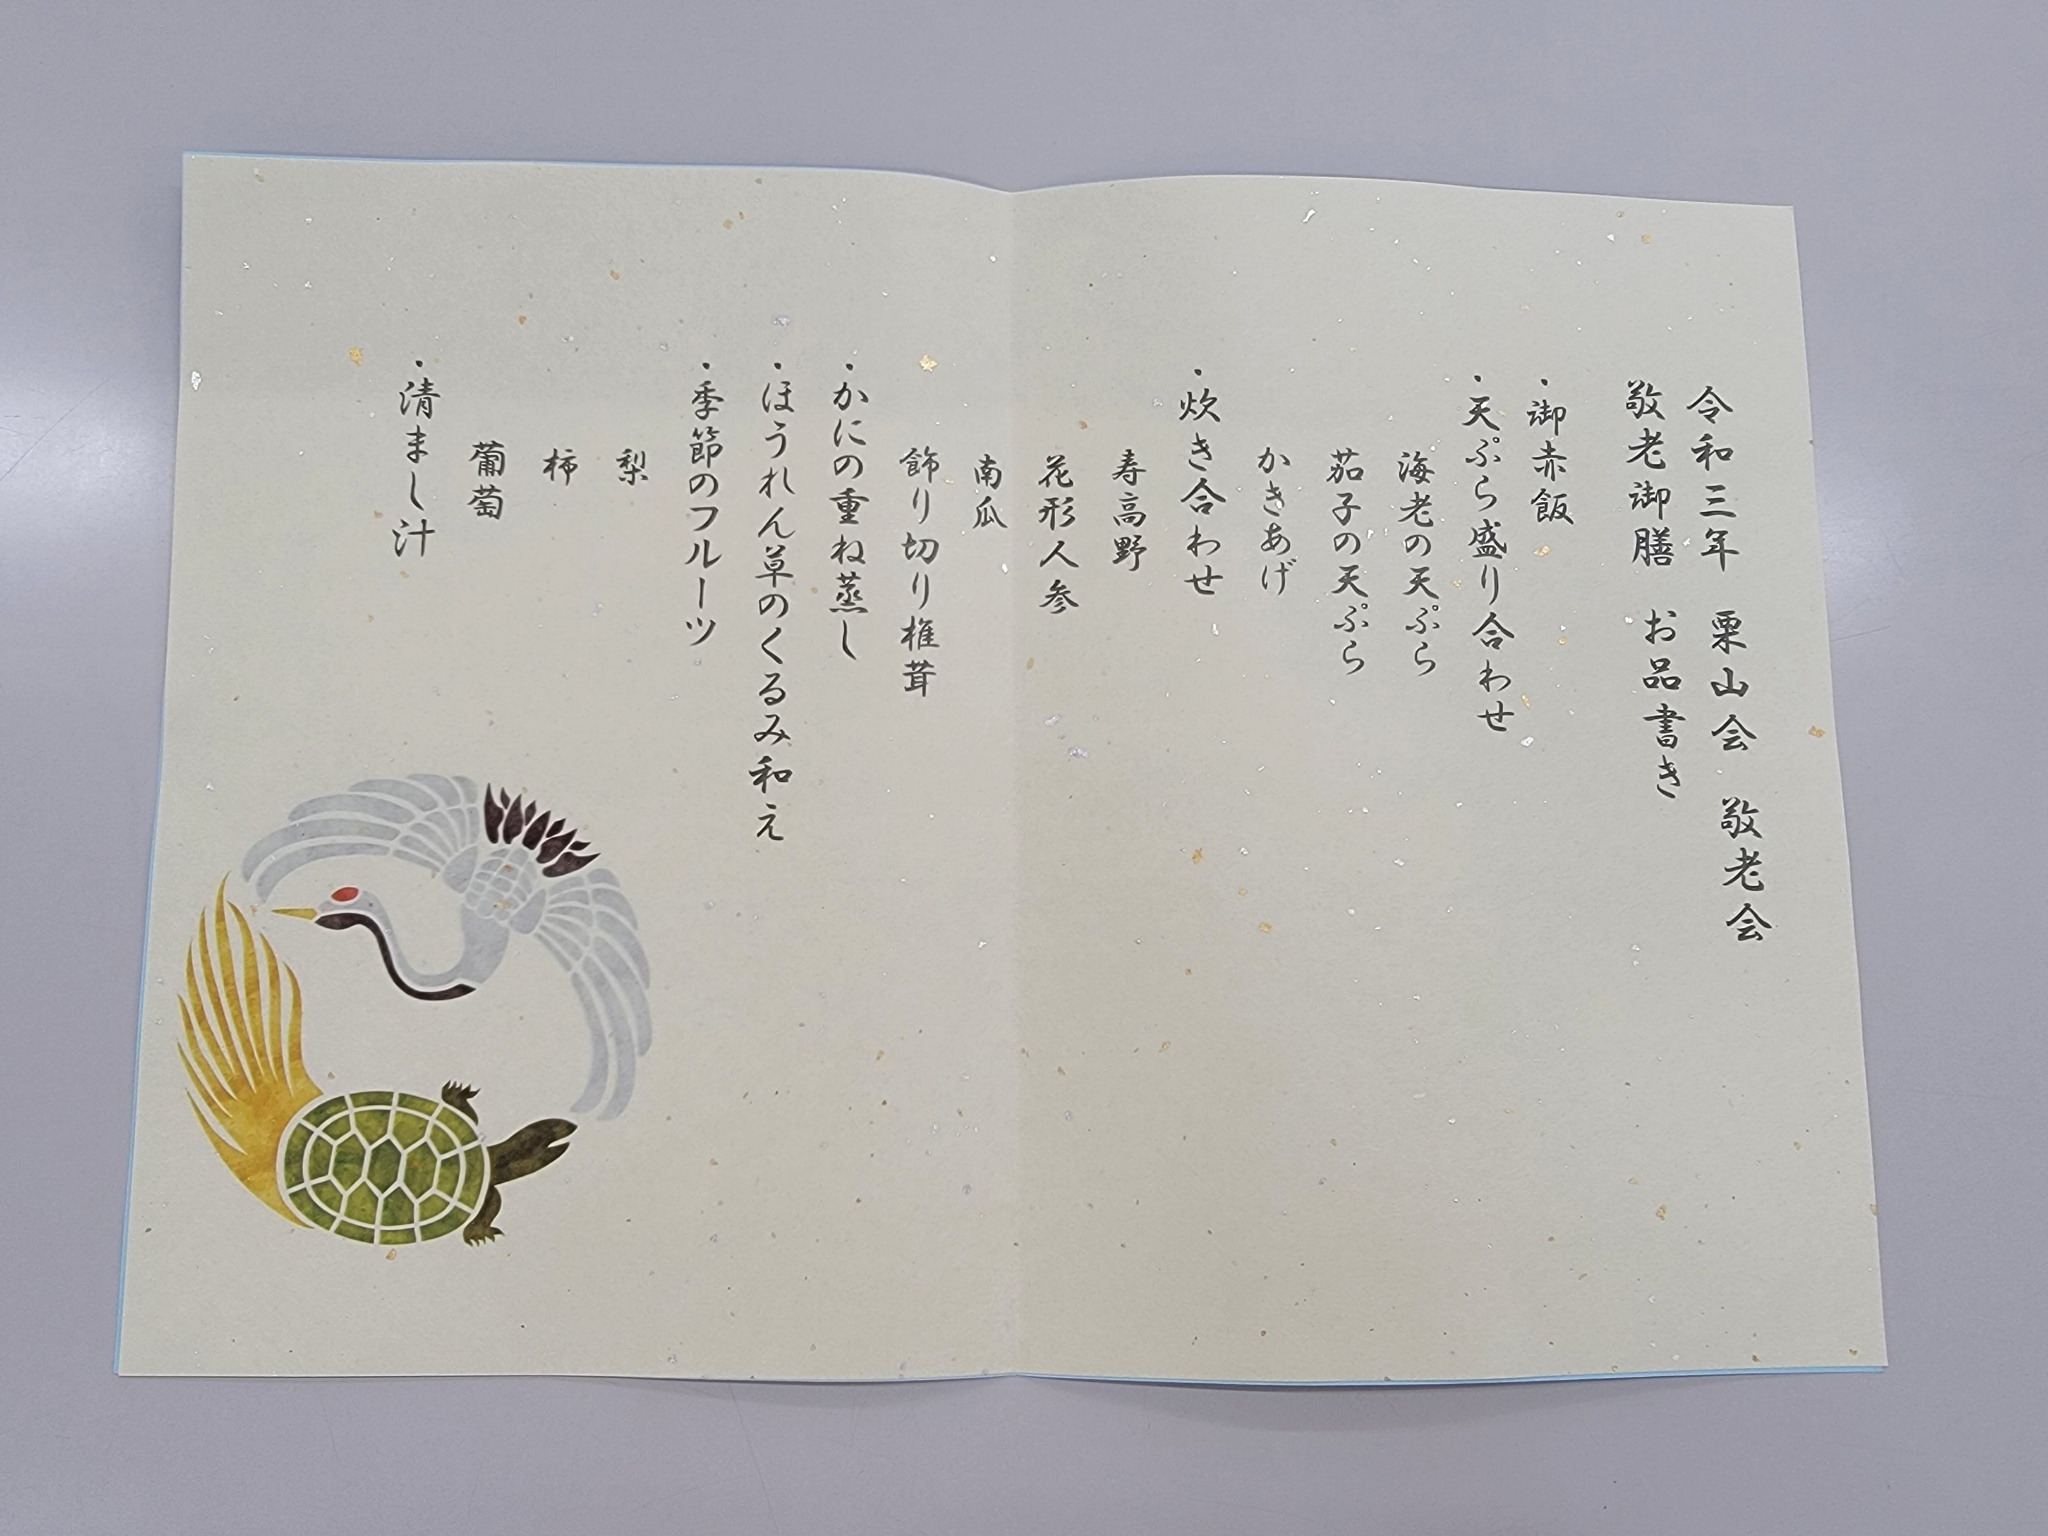 令和三年　栗山会　敬老会
敬老御膳　お品書き
・御赤飯
・天ぷら盛り合わせ
海老の天ぷら
茄子の天ぷら
かきあげ
・炊き合わせ
寿高野
花形人参
南瓜
飾り切り椎茸
・かにの重ね蒸し
・ほうれん草のくるみ和え
・季節のフルーツ
梨
柿
葡萄
・清まし汁